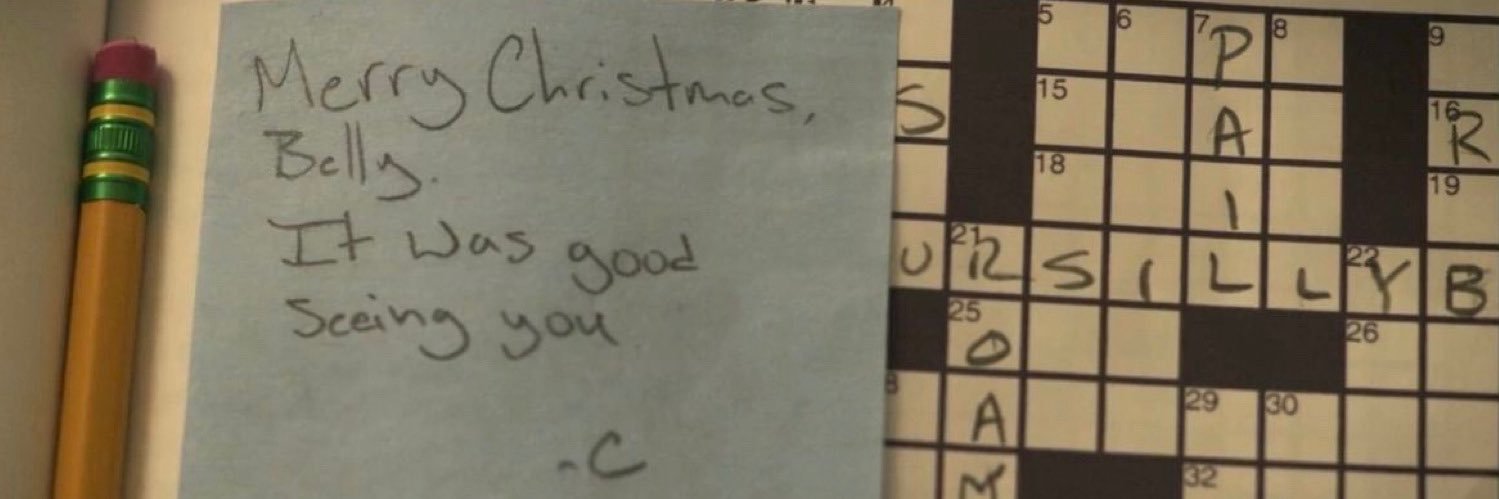 Merry Christmas,
Belly.
It was good
seeing you
-C
5 6 7 P 8 9
S 15 A 16 R
18 I 19
U 21 R S I L L 22 Y B
25 O 26
8 A 29 30
M 32